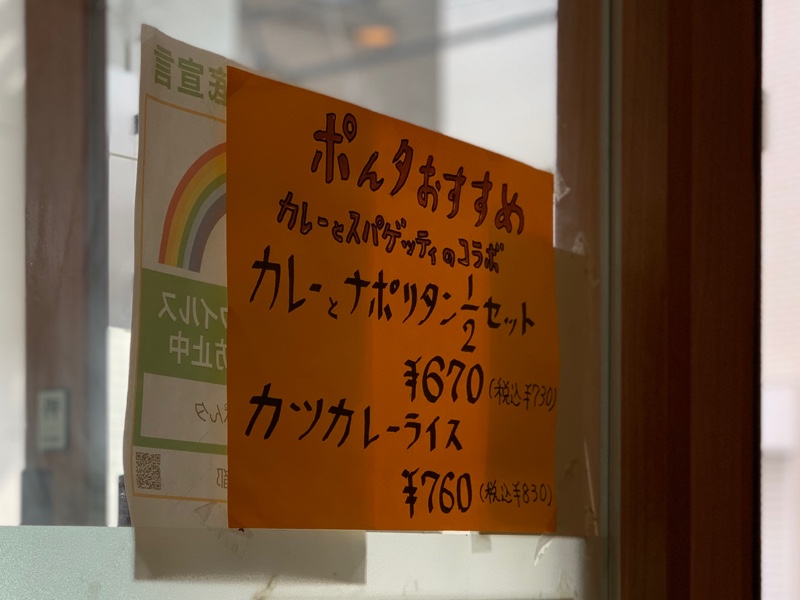 ポんタおすすめ
カレーとスパゲッティのコラボ
カレーとナポリタン1/2セット
¥670(税込¥730)
カツカレーライス
¥760(税込¥830)
底宣言
イルス
防止中
んタ
都